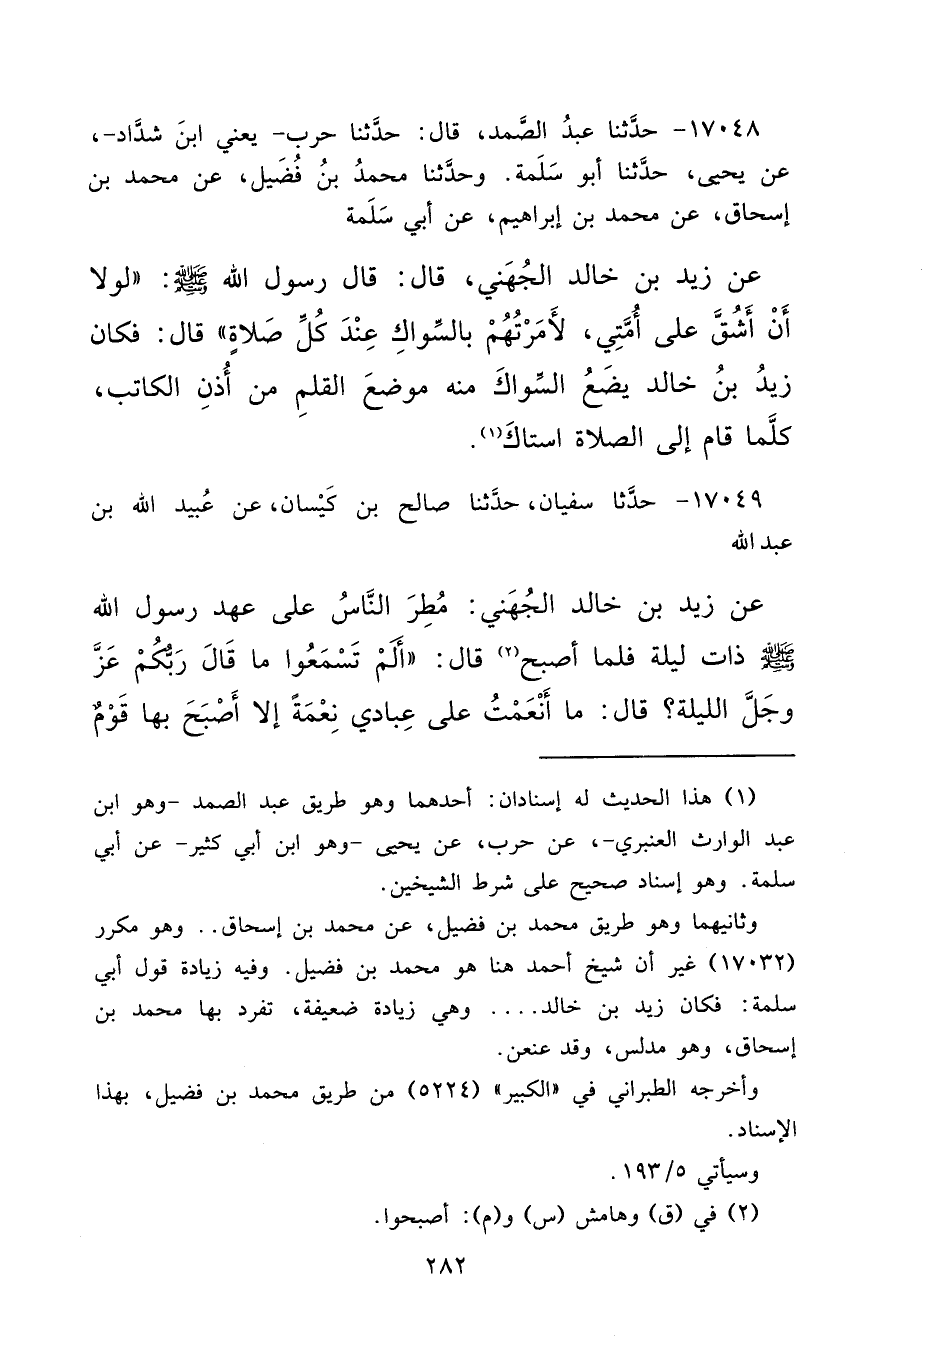 ١٧٠٤٨- حدَّثنا عبدُ الصَّمد، قال: حدَّثنا حرب- يعني ابنَ شدَّاد-،
عن يحيى، حدَّثنا أبو سَلَمة. وحدَّثنا محمدُ بنُ فُضَيل، عن محمد بن
إسحاق، عن محمد بن إبراهيم، عن أبي سَلَمة
عن زيد بن خالد الجُهَني، قال: قال رسول الله ﷺ: «لولا
أَنْ أَشُقَّ على أُمَّتِي، لأَمَرْتُهُمْ بالسِّواكِ عِنْدَ كُلِّ صَلاةٍ» قال: فكان
زيدُ بنُ خالد يضَعُ السِّواكَ منه موضعَ القلمِ من أُذنِ الكاتب،
كلَّما قام إلى الصلاة استاكَ(١).
١٧٠٤٩- حدَّثا سفيان، حدَّثنا صالح بن كَيْسان، عن عُبيد الله بن
عبد الله
عن زيد بن خالد الجُهَني: مُطِرَ النَّاسُ على عهد رسول الله
ﷺ ذات ليلة فلما أصبح(٢) قال: «أَلَمْ تَسْمَعُوا ما قَالَ رَبُّكُمْ عَزَّ
وجَلَّ الليلة؟ قال: ما أَنْعَمْتُ على عِبادي نِعْمَةً إلا أَصْبَحَ بها قَوْمٌ
(١) هذا الحديث له إسنادان: أحدهما وهو طريق عبد الصمد -وهو ابن
عبد الوارث العنبري-، عن حرب، عن يحيى -وهو ابن أبي كثير- عن أبي
سلمة. وهو إسناد صحيح على شرط الشيخين.
وثانيهما وهو طريق محمد بن فضيل، عن محمد بن إسحاق.. وهو مكرر
(١٧٠٣٢) غير أن شيخ أحمد هنا هو محمد بن فضيل. وفيه زيادة قول أبي
سلمة: فكان زيد بن خالد.... وهي زيادة ضعيفة، تفرد بها محمد بن
إسحاق، وهو مدلس، وقد عنعن.
وأخرجه الطبراني في «الكبير» (٥٢٢٤) من طريق محمد بن فضيل، بهذا
الإسناد.
وسيأتي ١٩٣/٥.
(٢) في (ق) وهامش (س) و(م): أصبحوا.
٢٨٢